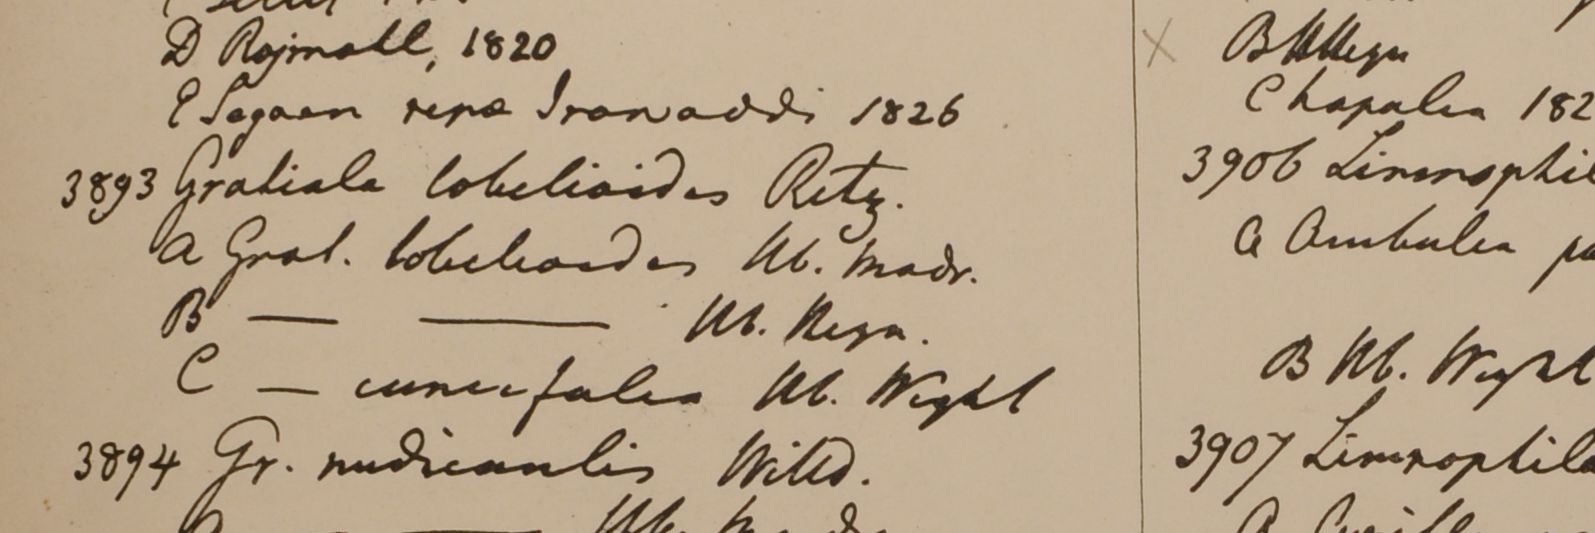 D Rajmahl, 1820
E Segaen repæ Irawaddi 1826
3893 Gratiola lobelioides Retz.
A Grat. lobelioides Hb. Madr.
B — — Hb. Heyn.
C — cuneifolia Hb. Wight
3894 Gr. nudicaulis Willd.
B Hb. Heyn
C hapalea 182
3906 Limnophil
a Ambulia pu
B Hb. Wight
3907 Limnophila